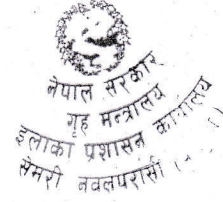 नेपाल सरकार
गृह मन्त्रालय
इलाका प्रशासन कार्यालय
सेमरी नवलपरासी